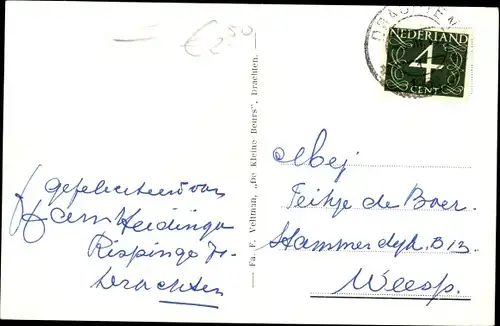 € 2.50
DRACHTEN
NEDERLAND
4
CENT
Fa. F. Veltman, „De Kleine Beurs", Drachten.
Gefeliciteerd van
Heidinga
Drachten
Mej
Feikje de Boer.
Stammerdyk. B 13.
Weesp.